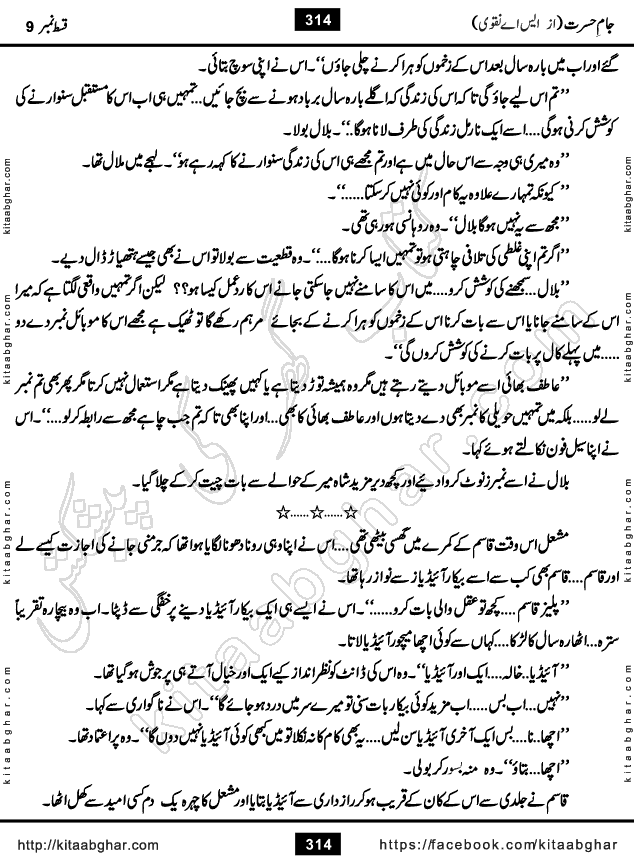 جام حسرت (از ایس اے نقوی)
314
قسط نمبر 9
گئے اور اب میں بارہ سال بعد اس کے زخموں کو ہرا کرنے چلی جاؤں‘‘۔ اس نے اپنی سوچ بتائی۔
’’تم اس لیے جاؤ گی تا کہ اس کی زندگی کہ اگلے بارہ سال برباد ہونے سے بچ جائیں... تمہیں ہی اب اس کا مستقبل سنوارنے کی
کوشش کرنی ہو گی .... اسے ایک نارمل زندگی کی طرف لانا ہو گا‘‘۔ بلال بولا۔
’’وہ میری ہی وجہ سے اس حال میں ہے اور تم مجھے ہی اس کی زندگی سنوارنے کا کہہ رہے ہو‘‘۔ لہجے میں ملال تھا۔
’’کیونکہ تمہارے علاوہ یہ کام اور کوئی نہیں کر سکتا......‘‘۔
’’مجھ سے یہ نہیں ہو گا بلال‘‘۔ وہ روہانسی ہو رہی تھی۔
’’اگر تم اپنی غلطی کی تلافی چاہتی ہو تو تمہیں ایسا کرنا ہو گا....‘‘۔ وہ قطعیت سے بولا تو اس نے بھی جیسے ہتھیار ڈال دیے۔
’’بلال... سمجھنے کی کوشش کرو.... میں اس کا سامنے نہیں جا سکتی جانے اس کا ردعمل کیسا ہو؟؟ لیکن اگر تمہیں واقعی لگتا ہے کہ میرا
اس کے سامنے جانا یا اس سے بات کرنا اس کے زخموں کو ہرا کرنے کے بجائے مرہم رکھے گا تو ٹھیک ہے مجھے اس کا موبائل نمبر دے دو
..... میں پہلے کال پر بات کرنے کی کوشش کروں گی‘‘۔
’’عاطف بھائی اسے موبائل دیتے رہتے ہیں مگر وہ ہمیشہ توڑ دیتا ہے یا کہیں پھینک دیتا ہے مگر استعمال نہیں کرتا مگر پھر بھی تم نمبر
لے لو..... بلکہ میں تمہیں حویلی کا نمبر بھی دے دیتا ہوں اور عاطف بھائی کا بھی... اور اپنا بھی تا کہ تم جب چاہے مجھ سے رابطہ کر لو....‘‘۔ اس
نے اپنا سیل فون نکالتے ہوئے کہا۔
بلال نے اسے نمبرز نوٹ کروا دیے اور کچھ دیر مزید شاہ میر کے حوالے سے بات چیت کر کے چلا گیا۔
☆......☆......☆
مشعل اس وقت قاسم کے کمرے میں گھسی بیٹھی تھی.... اس نے اپنا وہی رونا دھونا لگایا ہوا تھا کہ جرمنی جانے کی اجازت کیسے لے
اور قاسم.... قاسم بھی کب سے اسے بیکار آئیڈیاز سے نواز رہا تھا۔
’’پلیز قاسم .... کچھ تو عقل والی بات کرو......‘‘۔ اس نے ایسے ہی ایک بیکار آئیڈیا دینے پر خفگی سے ڈپٹا۔ اب وہ بیچارہ تقریباً
سترہ... اٹھارہ سال کا لڑکا.... کہاں سے کوئی اچھا میچور آئیڈیا لاتا۔
’’آئیڈیا.. خالہ.... ایک اور آئیڈیا‘‘۔ وہ اس کی ڈانٹ کو نظر انداز کیے ایک اور خیال آتے ہی پر جوش ہو گیا تھا۔
’’نہیں... اب بس.... اب مزید کوئی بیکار بات سنی تو میرے سر میں درد ہو جائے گا‘‘۔ اس نے ناگواری سے کہا۔
’’اچھا.. نا... بس ایک آخری آئیڈیا سن لیں.... یہ بھی کام کا نہ نکلا تو میں کبھی کوئی آئیڈیا نہیں دوں گا‘‘۔ وہ پر اعتماد تھا۔
’’اچھا... بتاؤ‘‘۔ وہ منہ بسور کر بولی۔
قاسم نے جلدی سے اس کے کان کے قریب ہو کر رازداری سے آئیڈیا بتایا اور مشعل کا چہرہ یک دم کسی امید سے کھل اٹھا۔
کتاب گھر کی پیشکش
kitaabghar.com
kitaabghar.com
kitaabghar.com
kitaabghar.com
kitaabghar.com
kitaabghar.com
kitaabghar.com
kitaabghar.com
kitaabghar.com
kitaabghar.com
kitaabghar.com
http://kitaabghar.com
314
https://facebook.com/kitaabghar